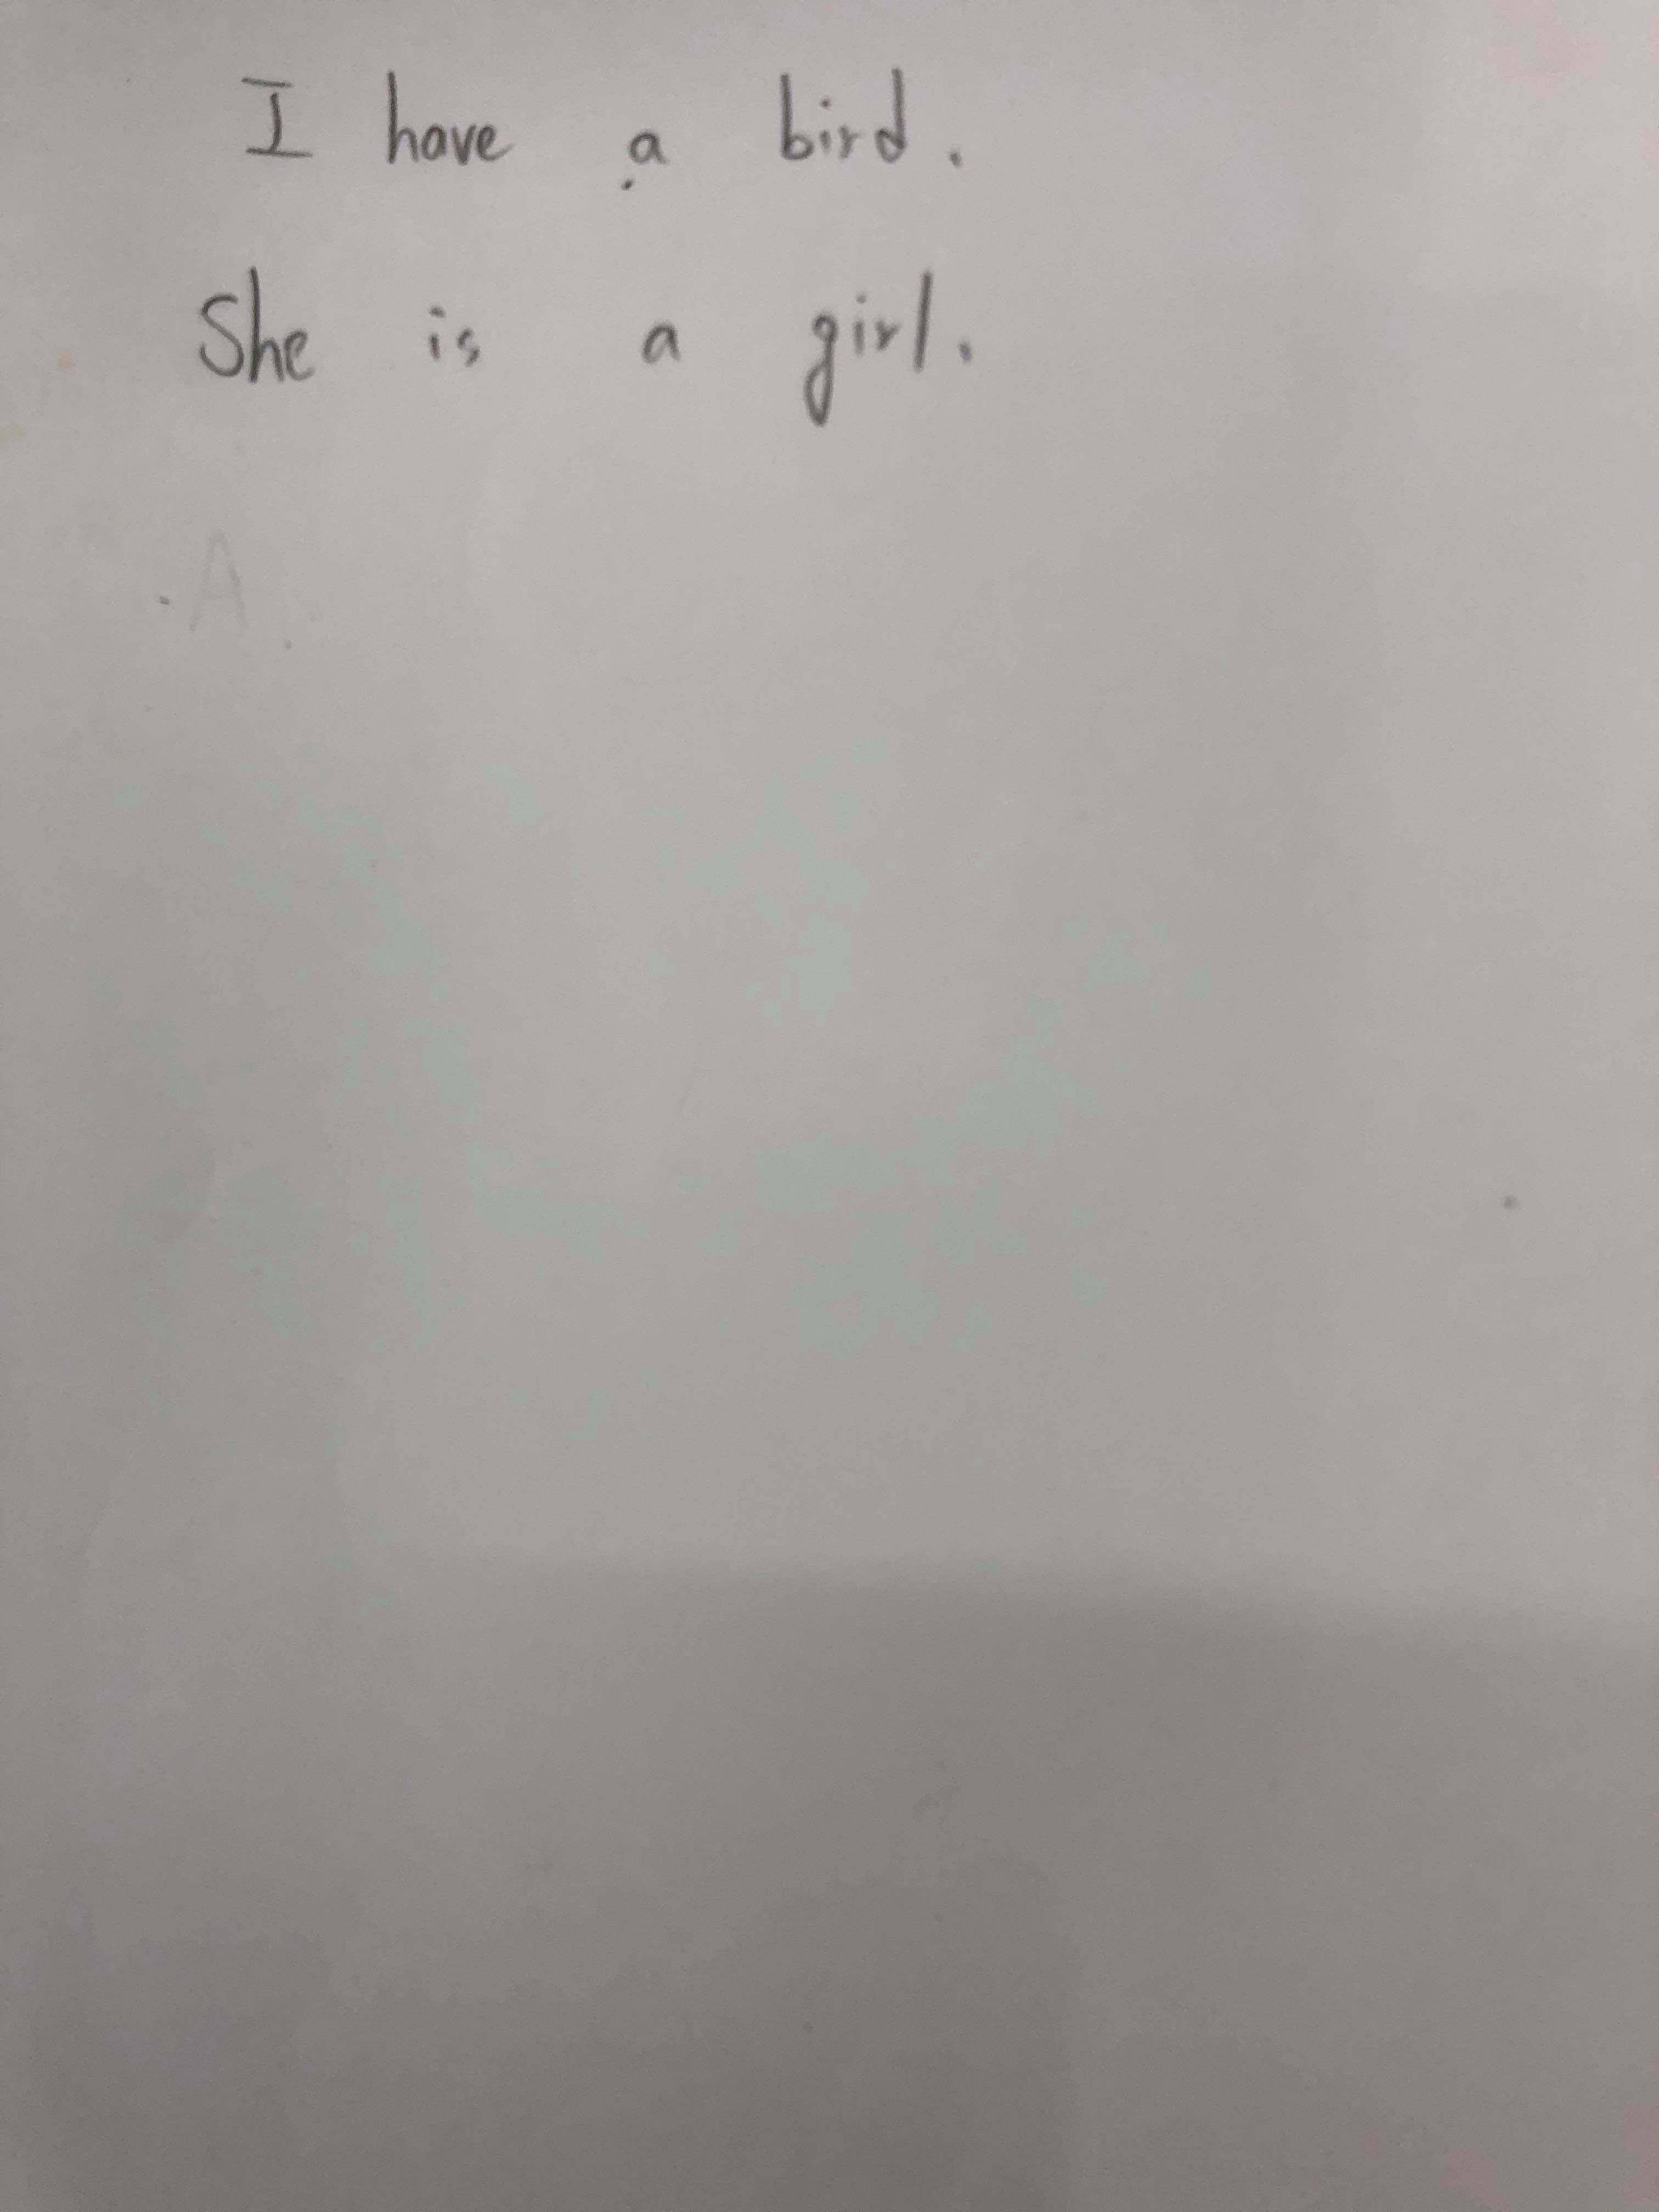 I have a bird.
She is a girl.
A